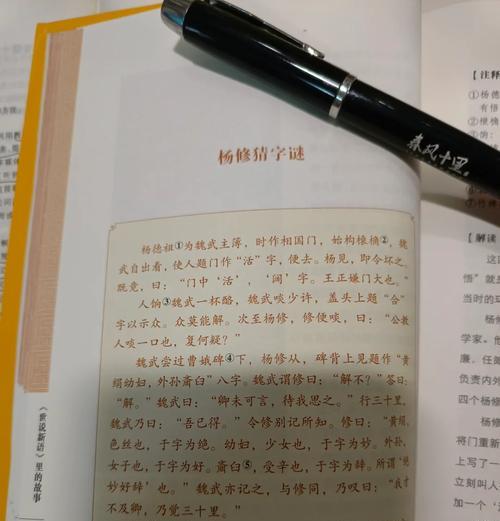 春风十里
杨修猜字谜
杨德祖①为魏武主簿，时作相国门，始构榱桷②，魏
武自出看，使人题门作“活”字，便去。杨见，即令坏之。
既竟，曰：“门中‘活’，‘阔’字。王正嫌门大也。”
人饷③魏武一杯酪，魏武啖少许，盖头上题“合”
字以示众。众莫能解。次至杨修，修便啖，曰：“公教
人啖一口也，复何疑？”
魏武尝过曹娥碑④下，杨修从，碑背上见题作“黄
绢幼妇，外孙齑臼”八字。魏武谓修曰：“解不？”答曰：
“解。”魏武曰：“卿未可言，待我思之。”行三十里，
魏武乃曰：“吾已得。”令修别记所知。修曰：“黄绢，
色丝也，于字为绝。幼妇，少女也，于字为妙。外孙，
女子也，于字为好。齑臼⑤，受辛也，于字为辞。所谓‘绝
妙好辞’也。”魏武亦记之，与修同，乃叹曰：“我才
不及卿，乃觉三十里。”
《世说新语》里的故事
【注释
①杨德
有悟
②榱桷
③饷：
【解读
这
悟”就
当时的
杨修
学家。他
廉、任郎
负责内外
四个杨修
杨修
将门重新
上写了一
立刻叫人
加一个‘